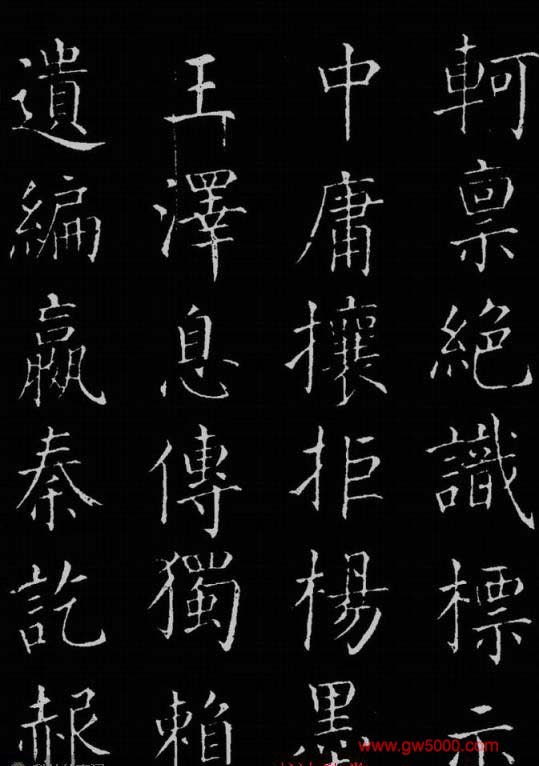 軻稟絕識標示
中庸攘拒楊墨
王澤息傳獨賴
遺編嬴秦訖赧
www.gw5000.com